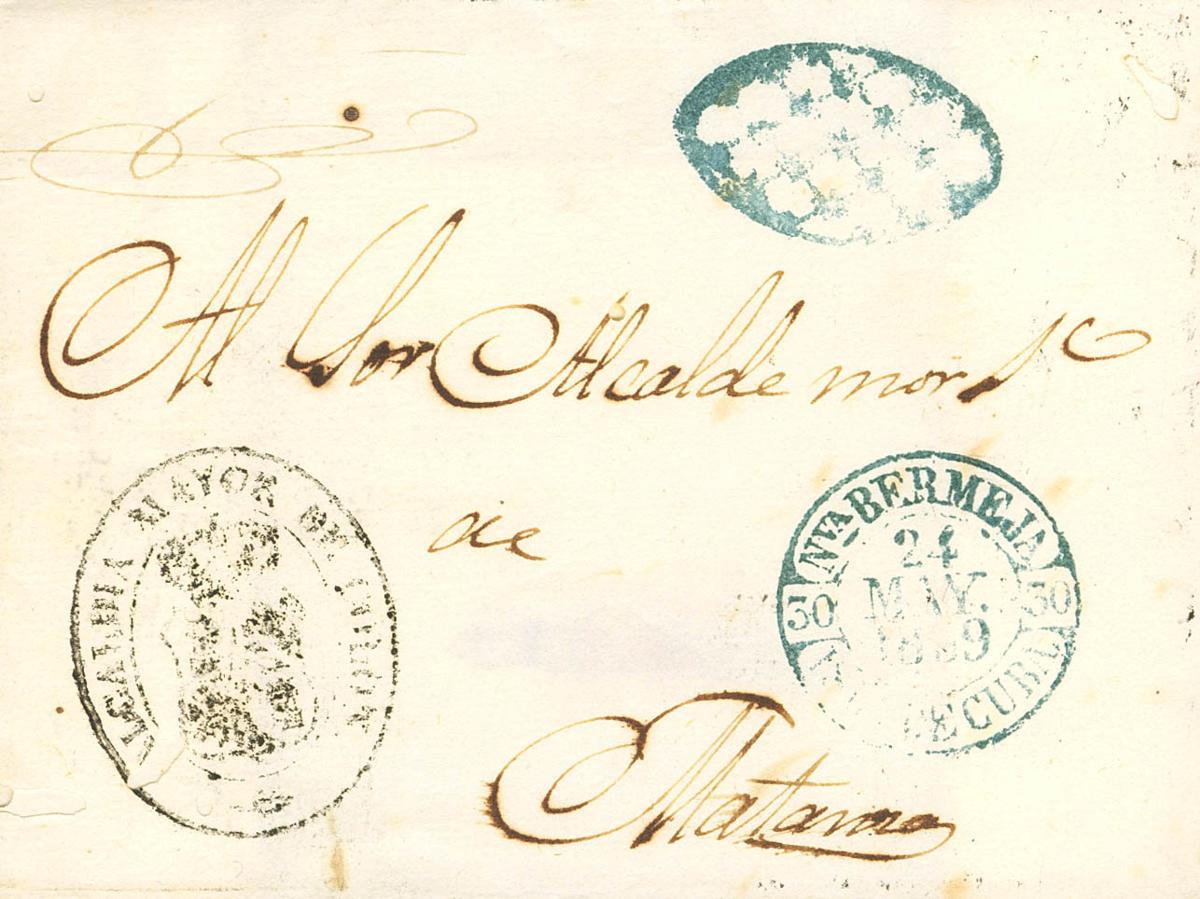 Al Sor Alcalde mor 1º
de
Matanzas
ALCALDIA MAYOR DE
Nva BERMEJA
30 24 30
MAY.
1859
DE CUBA